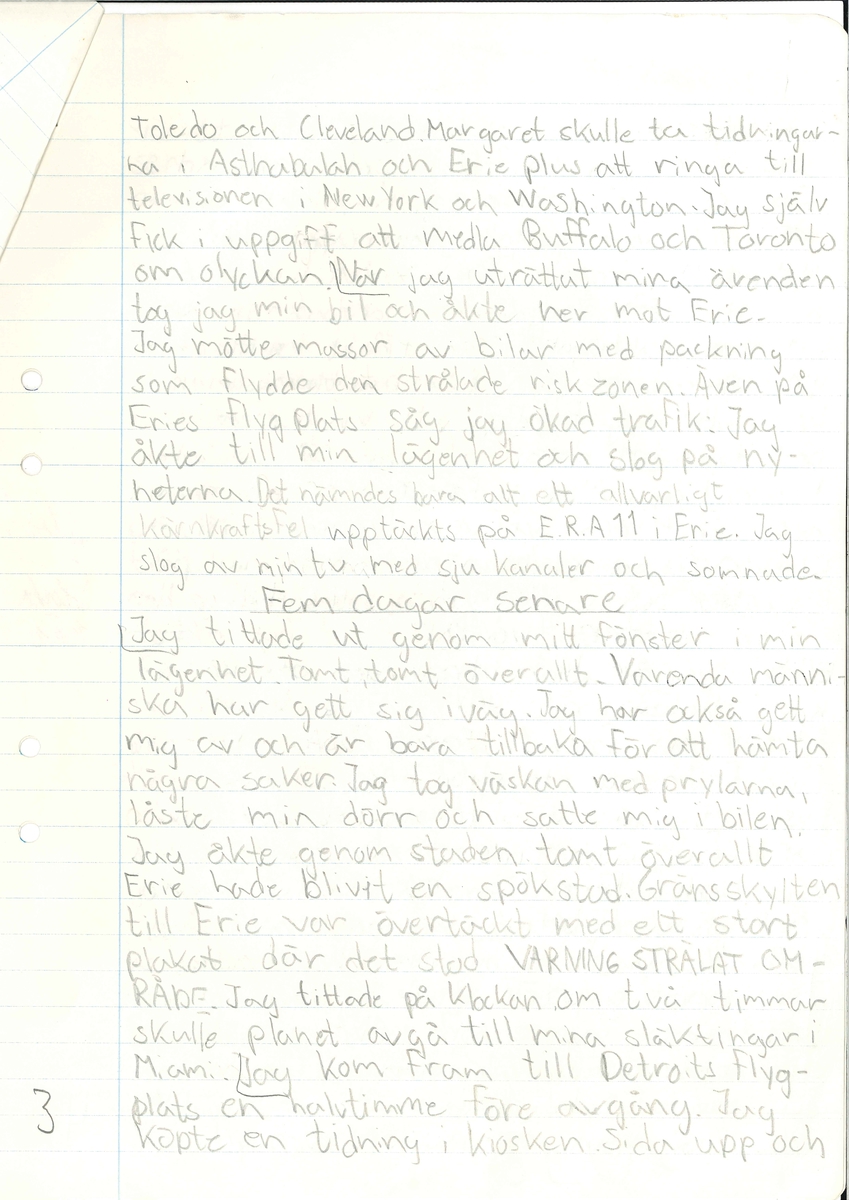 Toledo och Cleveland. Margaret skulle ta tidningar-
na i Asthabulah och Erie plus att ringa till
televisionen i New York och Washington. Jag själv
fick i uppgift att medla Buffalo och Toronto
om olyckan. När jag uträttat mina ärenden
tog jag min bil och åkte ner mot Erie.
Jag mötte massor av bilar med packning
som flydde den strålade riskzonen. Även på
Eries flygplats såg jag ökad trafik: Jag
åkte till min lägenhet och slog på ny-
heterna. Det nämndes bara att ett allvarligt
kärnkraftsfel upptäckts på E.R.A 11 i Erie. Jag
slog av min tv med sju kanaler och somnade.
Fem dagar senare
Jag tittade ut genom mitt fönster i min
lägenhet. Tomt, tomt överallt. Varenda männi-
ska har gett sig iväg. Jag har också gett
mig av och är bara tillbaka för att hämta
några saker. Jag tog väskan med prylarna,
låste min dörr och satte mig i bilen.
Jag åkte genom staden tomt överallt
Erie hade blivit en spökstad. Gränsskylten
till Erie var övertäckt med ett stort
plakat där det stod VARNING STRÅLAT OM-
RÅDE. Jag tittade på klockan, om två timmar
skulle planet avgå till mina släktingar i
Miami. Jag kom fram till Detroits flyg-
plats en halvtimme före avgång. Jag
köpte en tidning i kiosken. Sida upp och
3